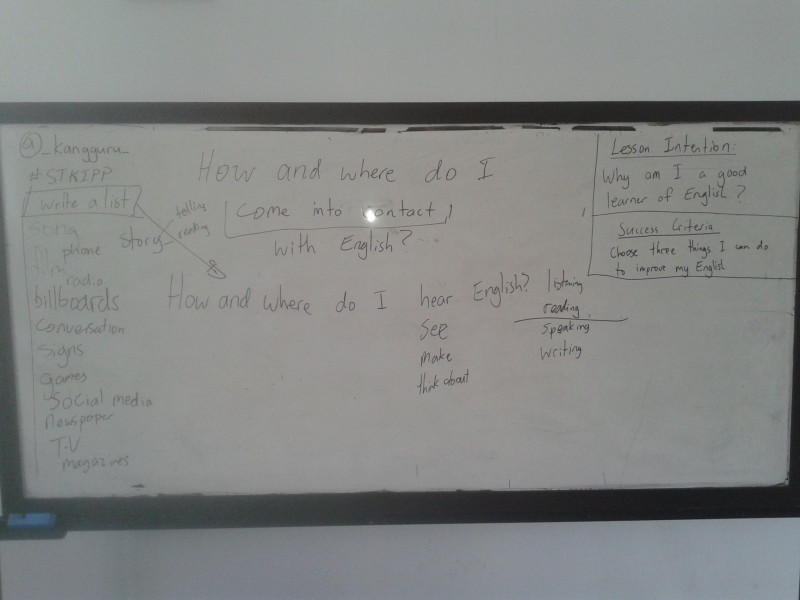 @_kangguru_
#STKIPP
write a list
song
phone
film
radio
billboards
conversation
signs
games
social media
newspaper
T.V
magazines
story
telling
reading
How and where do I
come into contact
with English?
How and where do I hear English?
see
make
think about
listening
reading
speaking
writing
Lesson Intention:
Why am I a good
learner of English?
Success Criteria
Choose three things I can do
to improve my English